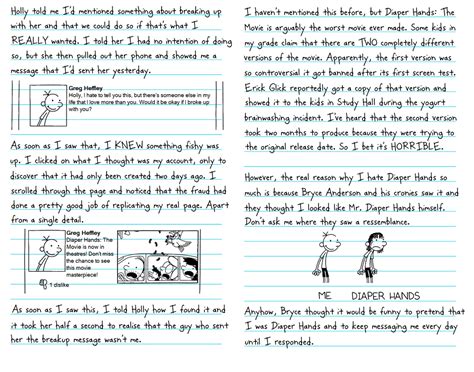 Holly told me I'd mentioned something about breaking up
with her and that we could do so if that's what I
REALLY wanted. I told her I had no intention of doing
so, but she then pulled out her phone and showed me a
message that I'd sent her yesterday.
Greg Heffley
Holly, I hate to tell you this, but there's someone else in my
life that I love more than you. Would it be okay if I broke up
with you?
As soon as I saw that, I KNEW something fishy was
up. I clicked on what I thought was my account, only to
discover that it had only been created two days ago. I
scrolled through the page and noticed that the fraud had
done a pretty good job of replicating my real page. Apart
from a single detail.
Greg Heffley
Diaper Hands: The
Movie is now in
theatres! Don't miss
the chance to see
this movie
masterpiece!
1 dislike
As soon as I saw this, I told Holly how I found it and
it took her half a second to realise that the guy who sent
her the breakup message wasn't me.
I haven't mentioned this before, but Diaper Hands: The
Movie is arguably the worst movie ever made. Some kids in
my grade claim that there are TWO completely different
versions of the movie. Apparently, the first version was
so controversial it got banned after its first screen test.
Erick Glick reportedly got a copy of that version and
showed it to the kids in Study Hall during the yogurt
brainwashing incident. I've heard that the second version
took two months to produce because they were trying to
the original release date. So I bet it's HORRIBLE.
However, the real reason why I hate Diaper Hands so
much is because Bryce Anderson and his cronies saw it and
they thought I looked like Mr. Diaper Hands himself.
Don't ask me where they saw a ressemblance.
ME DIAPER HANDS
Anyhow, Bryce thought it would be funny to pretend that
I was Diaper Hands and to keep messaging me every day
until I responded.